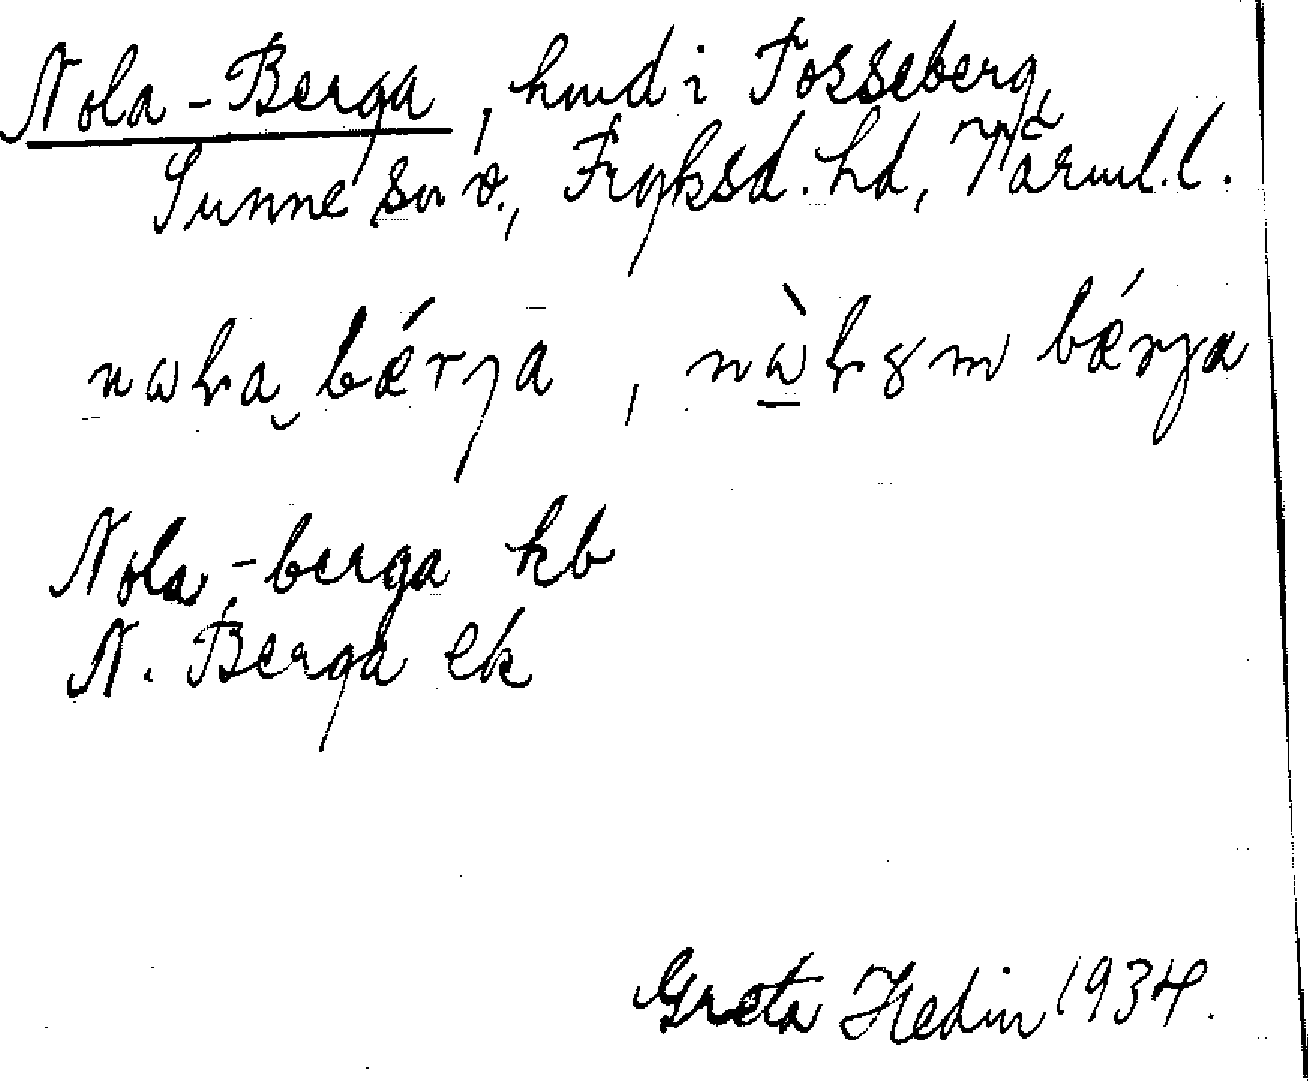 Nola-Berga, hmd i Fosseberg,
Sunne sn o., Fryksd. hd, Värml. l.
Nola-berga kb
N. Berga ek
Greta Hedin 1934.